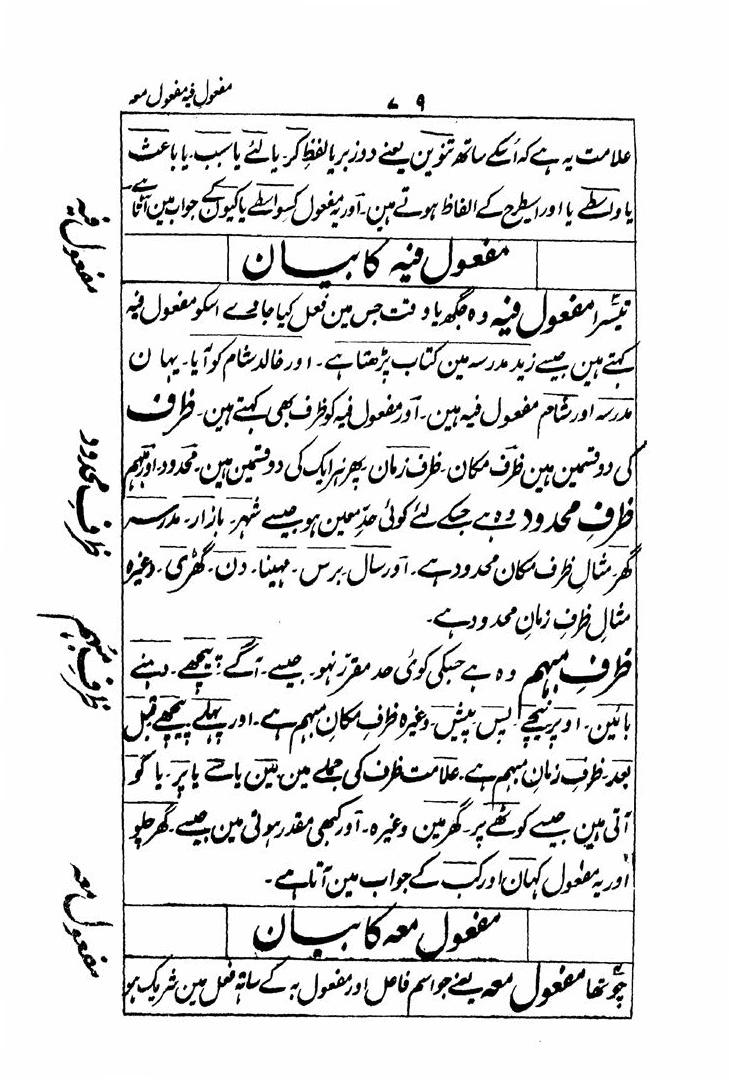 مفعول فیہ مفعول معہ
۷۹
علامت یہ ہے کہ اُسکے ساتھ تنوین یعنے دو زبر یا لفظِ کر۔ یا لئے یا سبب۔ یا باعث
یا واسطے یا اور اسیطرح کے الفاظ ہوتے ہین۔ اور یہ مفعول کسواسطے یا کیون کے جواب مین آتا ہے
مفعول فیہ
مفعول فیہ کا بیان
تیسرا مفعول فیہ وہ جگھ یا وقت جس مین فعل کیا جاوے اسکو مفعول فیہ
کہتے ہین جیسے زید مدرسہ مین کتاب پڑھتا ہے۔ اور خالد شام کو آیا۔ یہان
مدرسہ اور شام مفعول فیہ ہین۔ اور مفعول فیہ کو ظرف بھی کہتے ہین۔ ظرف
کی دو قسمین ہین ظرف مکان۔ ظرف زمان۔ پھر ہر ایک کی دو قسمین ہین۔ محدود۔ اور مبہم
ظرفِ محدود
ظرفِ محدود وہ ہے جسکے لئے کوئی حدِّ معین ہو جیسے شہر۔ بازار۔ مدرسہ
گھر۔ مثالِ ظرف مکان محدود ہے۔ اور سال۔ برس۔ مہینا۔ دن۔ گھڑی۔ وغیرہ
مثالِ ظرفِ زمانِ محدود ہے۔
ظرفِ مبہم
ظرفِ مبہم وہ ہے جسکی کوئی حد مقرر نہو۔ جیسے۔ آگے۔ پیچھے۔ دہنے
بائین۔ اوپر نیچے۔ پس۔ پیش۔ وغیرہ ظرفِ مکانِ مبہم ہے۔ اور پہلے پیچھے قبل
بعد۔ ظرفِ زمانِ مبہم ہے۔ علامت ظرف کی جملے مین مین یا سے یا پر۔ یا کو
آتی ہین جیسے کوٹھے پر۔ گھر مین وغیرہ۔ اور کبھی مقدر ہوتی ہین جیسے۔ گھر چلو
اور یہ مفعول کہان اور کب کے جواب مین آتا ہے۔
مفعول معہ
مفعول معہ کا بیان
چوتھا مفعول معہ یعنے جو اسم فاعل اور مفعول بہ کے ساتھ فعل مین شریک ہو